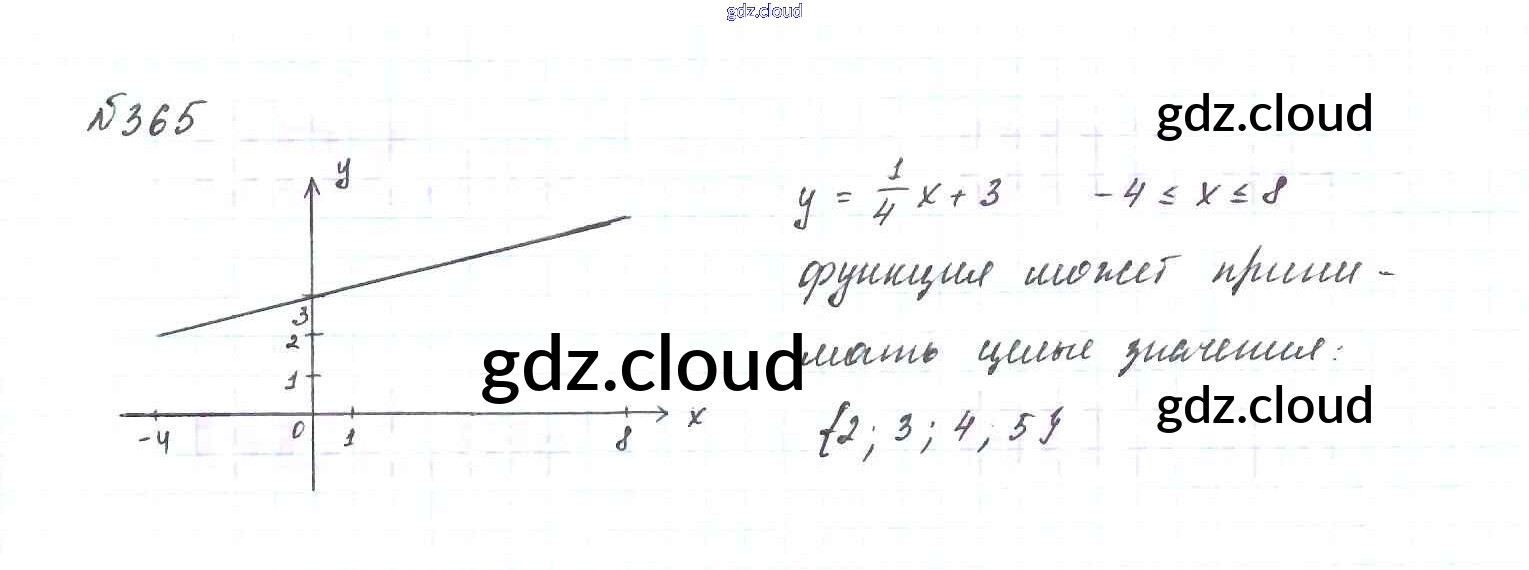 gdz.cloud
№365
gdz.cloud
y
y = 1/4 x + 3   -4 ≤ x ≤ 8
функция может прини-
3
2
мать целые значения:
gdz.cloud
1
gdz.cloud
x
-4 0 1 8
{2; 3; 4; 5}